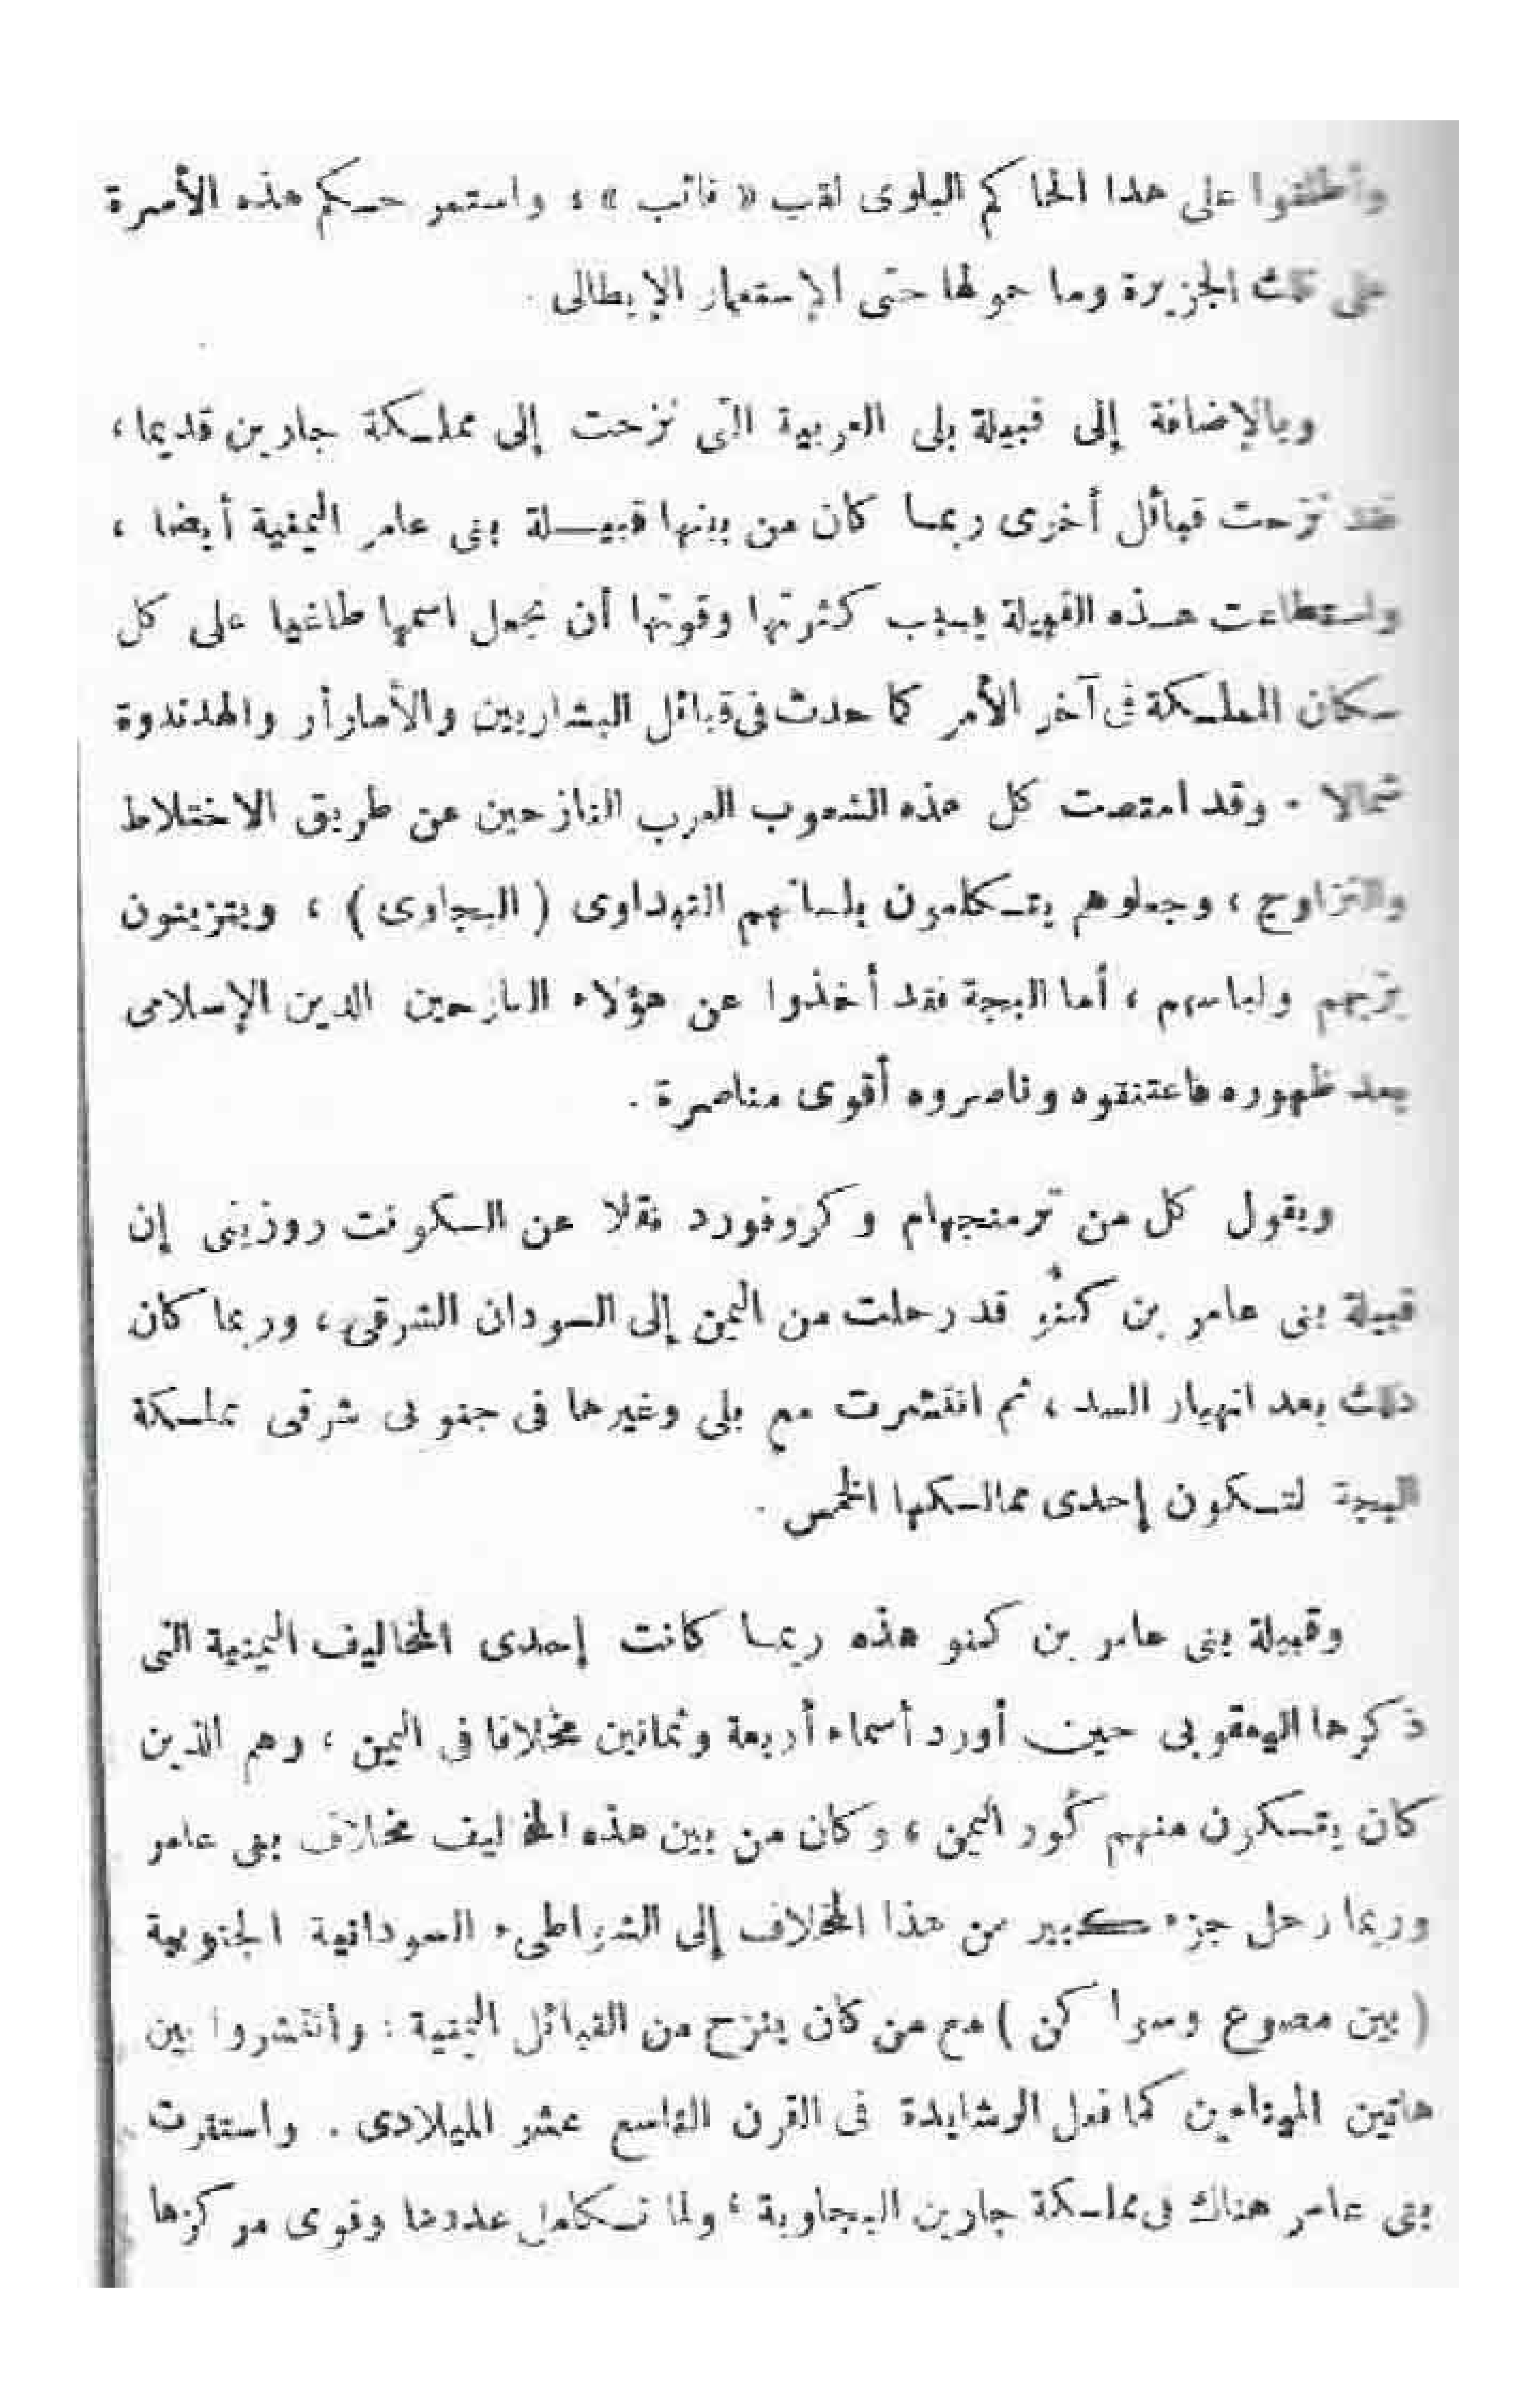 وأطلقوا على هذا الحاكم البلوى لقب « نائب » ؛ واستمر حكم هذه الأسرة
على تلك الجزيرة وما حولها حتى الإستعمار الإيطالى .
وبالإضافة إلى قبيلة بلى العربية التى نزحت إلى مملكة جارين قديما ،
فقد نزحت قبائل أخرى ربما كان من بينها قبيلة بنى عامر اليمنية أيضا ،
واستطاعت هذه القبيلة بسبب كثرتها وقوتها أن تجعل اسمها طاغيا على كل
سكان المملكة فى آخر الأمر كما حدث فى قبائل البشاريين والأمارأر والهدندوة
شمالا - وقد امتصت كل هذه الشعوب العرب النازحين عن طريق الاختلاط
والتزاوج ، وجعلوهم يتكلمون بلسانهم التبداوى ( البجاوى ) ، ويتزينون
بزيهم ولباسهم ، أما البجة فقد أخذوا عن هؤلاء النازحين الدين الإسلامى
بعد ظهوره فاعتنقوه وناصروه أقوى مناصرة .
ويقول كل من ترمنجهام وكروفورد نقلا عن الكونت روزينى إن
قبيلة بنى عامر بن كنو قد رحلت من اليمن إلى السودان الشرقى ، وربما كان
ذلك بعد انهيار السد ، ثم انتشرت مع بلى وغيرها فى جنوبى شرقى مملكة
البجة لتكون إحدى ممالكها الخمس .
وقبيلة بنى عامر بن كنو هذه ربما كانت إحدى المخاليف اليمنية التى
ذكرها اليعقوبى حين أورد أسماء أربعة وثمانين مخلافا فى اليمن ، وهم الذين
كان يتكون منهم كُور اليمن ، وكان من بين هذه المخاليف مخلاف بنى عامر
وربما رحل جزء كبير من هذا المخلاف إلى الشواطىء السودانية الجنوبية
( بين مصوع وسواكن ) مع من كان ينزح من القبائل اليمنية : وانتشروا بين
هاتين الميناءين كما فعل الرشايدة فى القرن التاسع عشر الميلادى . واستقرت
بنى عامر هناك فى مملكة جارين البجاوية ؛ ولما تكامل عددها وقوى مركزها